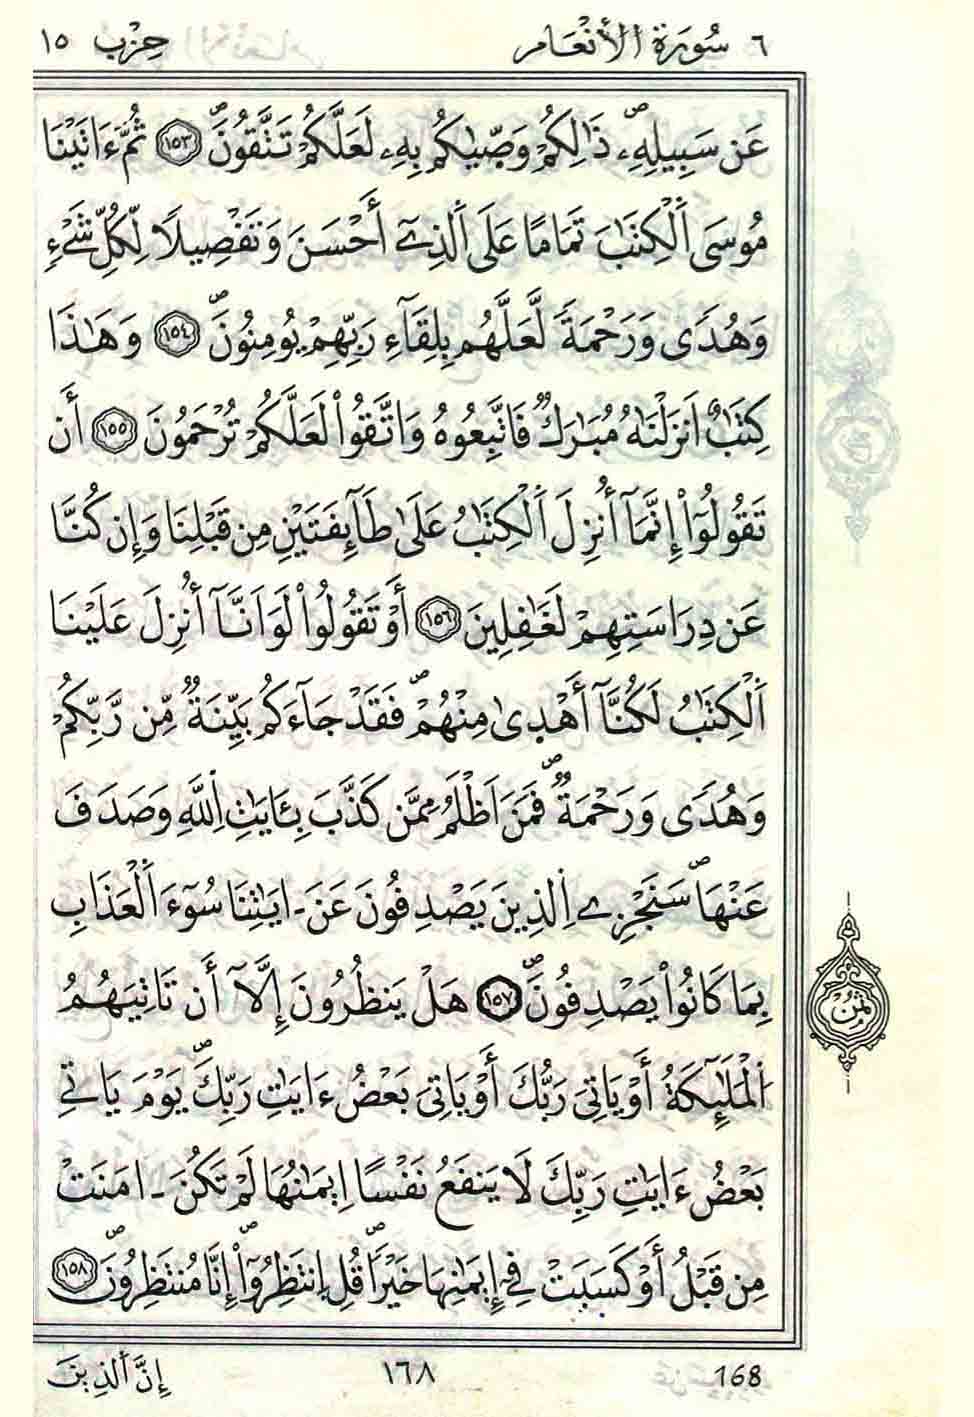 ٦ سُورَةُ الأَنْعَام حِزْب ١٥
عَن سَبِيلِهِۦۖ ذَٰلِكُمْ وَصّ۪يٰكُم بِهِۦ لَعَلَّكُمْ تَتَّقُونَۖ ١٥٣ ثُمَّ ءَاتَيْنَا
مُوسَى اَلْكِتَٰبَ تَمَامًا عَلَى اَلذِےٓ أَحْسَنَ وَتَفْصِيلًا لِّكُلِّ شَےْءٍ
وَهُدًى وَرَحْمَةً لَّعَلَّهُم بِلِقَآءِ رَبِّهِمْ يُومِنُونَۖ ١٥٤ وَهَٰذَا
كِتَٰبٌ اَنزَلْنَٰهُ مُبَٰرَكٌ فَاتَّبِعُوهُ وَاتَّقُواْ لَعَلَّكُمْ تُرْحَمُونَ ١٥٥ أَن
تَقُولُوٓاْ إِنَّمَآ أُنزِلَ اَلْكِتَٰبُ عَلَىٰ طَآئِفَتَيْنِ مِن قَبْلِنَا وَإِن كُنَّا
عَن دِرَاسَتِهِمْ لَغَٰفِلِينَ ١٥٦ أَوْ تَقُولُواْ لَوَ اَنَّآ أُنزِلَ عَلَيْنَا
اَلْكِتَٰبُ لَكُنَّآ أَهْد۪ىٰ مِنْهُمْۖ فَقَدْ جَآءَكُم بَيِّنَةٌ مِّن رَّبِّكُمْ
وَهُدًى وَرَحْمَةٌۖ فَمَنَ اَظْلَمُ مِمَّن كَذَّبَ بِـَٔايَٰتِ اِ۬للَّهِ وَصَدَفَ
عَنْهَاۖ سَنَجْزِے اِ۬لذِينَ يَصْدِفُونَ عَنَ ـ ايَٰتِنَا سُوٓءَ اَلْعَذَابِ
بِمَا كَانُواْ يَصْدِفُونَۖ ١٥٧ هَلْ يَنظُرُونَ إِلَّآ أَن تَاتِيَهُمُ
اُلْمَلَٰٓئِكَةُ أَوْ يَاتِىَ رَبُّكَ أَوْ يَاتِىَ بَعْضُ ءَايَٰتِ رَبِّكَۖ يَوْمَ يَاتِے
بَعْضُ ءَايَٰتِ رَبِّكَ لَا يَنفَعُ نَفْسًا اِيمَٰنُهَا لَمْ تَكُنَ ـ امَنَتْ
مِن قَبْلُ أَوْ كَسَبَتْ فِےٓ إِيمَٰنِهَا خَيْرًاۖ قُلِ اِنتَظِرُوٓاْۖ إِنَّا مُنتَظِرُونَۖ ١٥٨
ثُمُن
إِنَّ اَلذِينَ ١٦٨ 168